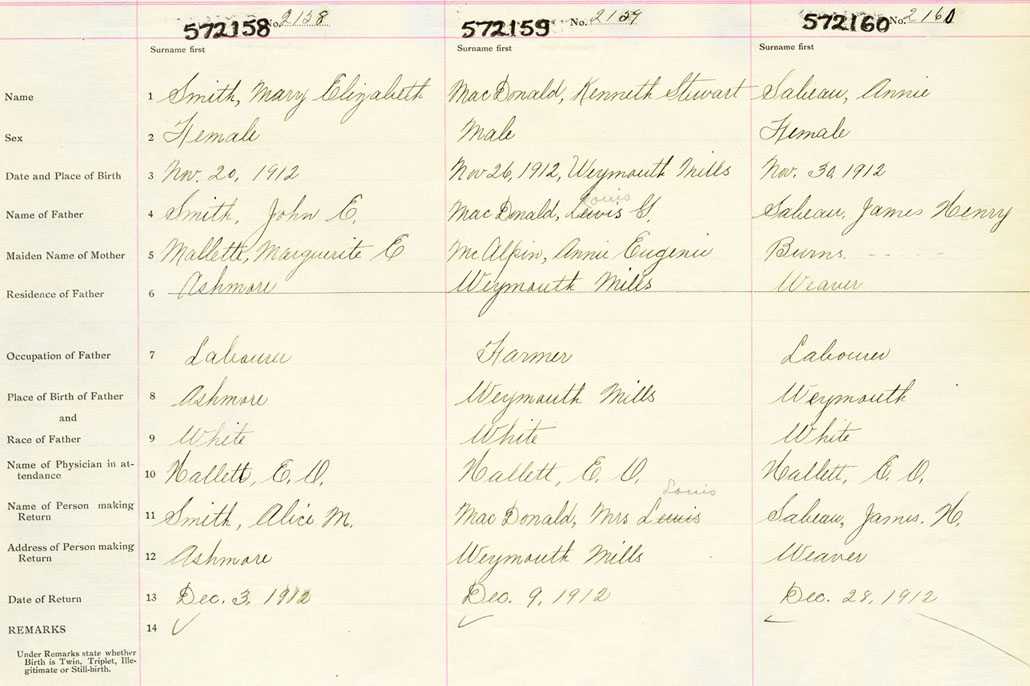 572158 No. 2158 572159 No. 2159 572160 No. 2160
Surname first Surname first Surname first
Name 1 Smith, Mary Elizabeth MacDonald, Kenneth Stewart Sabeau, Annie
Sex 2 Female Male Female
Date and Place of Birth 3 Nov. 20, 1912 Nov 26, 1912, Weymouth Mills Nov. 30, 1912
Louis
Name of Father 4 Smith, John E. MacDonald, Lewis G. Sabeau, James Henry
Maiden Name of Mother 5 Mallette, Marguerite E McAlpin, Annie Eugenie Burns. - - - - -
Residence of Father 6 Ashmore Weymouth Mills Weaver
Occupation of Father 7 Labourer Farmer Labourer
Place of Birth of Father 8 Ashmore Weymouth Mills Weymouth
and
Race of Father 9 White White White
Name of Physician in at-
tendance 10 Hallett, E. O. Hallett, E. O. Hallett, E. O.
Louis
Name of Person making
Return 11 Smith, Alice M. MacDonald, Mrs Lewis Sabeau, James. H.
Address of Person making
Return 12 Ashmore Weymouth Mills Weaver
Date of Return 13 Dec. 3, 1912 Dec. 9, 1912 Dec. 28, 1912
REMARKS 14
Under Remarks state whether
Birth is Twin, Triplet, Ille-
gitimate or Still-birth.